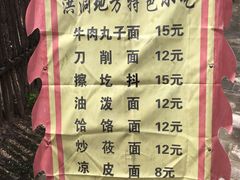 洪洞地方特色小吃
牛肉丸子面 15元
刀削面 12元
擦圪抖 15元
油泼面 12元
饸饹面 12元
炒莜面 12元
凉皮面 8元